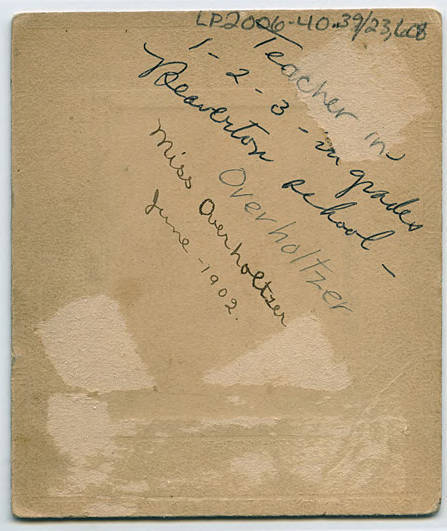 LP2006-40-39/23,608
Teacher in
1-2-3-in grades
Beaverton school-
Overholtzer
Miss Overholtzer
June-1902.